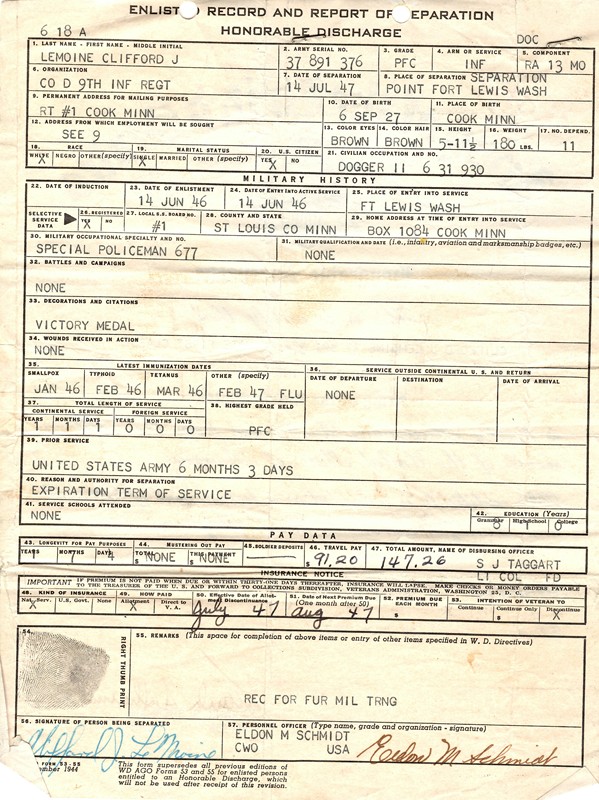 ENLISTED RECORD AND REPORT OF SEPARATION
HONORABLE DISCHARGE
6 18 A
DOC
1. LAST NAME - FIRST NAME - MIDDLE INITIAL
LEMOINE CLIFFORD J
2. ARMY SERIAL NO.
37 891 376
3. GRADE
PFC
4. ARM OR SERVICE
INF
5. COMPONENT
RA 13 MO
6. ORGANIZATION
CO D 9TH INF REGT
7. DATE OF SEPARATION
14 JUL 47
8. PLACE OF SEPARATION SEPARATION
POINT FORT LEWIS WASH
9. PERMANENT ADDRESS FOR MAILING PURPOSES
RT #1 COOK MINN
10. DATE OF BIRTH
6 SEP 27
11. PLACE OF BIRTH
COOK MINN
12. ADDRESS FROM WHICH EMPLOYMENT WILL BE SOUGHT
SEE 9
13. COLOR EYES
BROWN
14. COLOR HAIR
BROWN
15. HEIGHT
5-11½
16. WEIGHT
180 LBS.
17. NO. DEPEND.
11
18. RACE
WHITE NEGRO OTHER (specify)
X
19. MARITAL STATUS
SINGLE MARRIED OTHER (specify)
X
20. U.S. CITIZEN
YES NO
X
21. CIVILIAN OCCUPATION AND NO.
DOGGER II 6 31 930
MILITARY HISTORY
22. DATE OF INDUCTION
23. DATE OF ENLISTMENT
14 JUN 46
24. DATE OF ENTRY INTO ACTIVE SERVICE
14 JUN 46
25. PLACE OF ENTRY INTO SERVICE
FT LEWIS WASH
SELECTIVE SERVICE DATA
26. REGISTERED
YES NO
X
27. LOCAL S.S. BOARD NO.
#1
28. COUNTY AND STATE
ST LOUIS CO MINN
29. HOME ADDRESS AT TIME OF ENTRY INTO SERVICE
BOX 1084 COOK MINN
30. MILITARY OCCUPATIONAL SPECIALTY AND NO.
SPECIAL POLICEMAN 677
31. MILITARY QUALIFICATION AND DATE (i.e., infantry, aviation and marksmanship badges, etc.)
NONE
32. BATTLES AND CAMPAIGNS
NONE
33. DECORATIONS AND CITATIONS
VICTORY MEDAL
34. WOUNDS RECEIVED IN ACTION
NONE
35. LATEST IMMUNIZATION DATES
SMALLPOX TYPHOID TETANUS OTHER (specify)
JAN 46 FEB 46 MAR 46 FEB 47 FLU
36. SERVICE OUTSIDE CONTINENTAL U.S. AND RETURN
DATE OF DEPARTURE DESTINATION DATE OF ARRIVAL
NONE
37. TOTAL LENGTH OF SERVICE
CONTINENTAL SERVICE FOREIGN SERVICE
YEARS MONTHS DAYS YEARS MONTHS DAYS
1 1 1 0 0 0
38. HIGHEST GRADE HELD
PFC
39. PRIOR SERVICE
UNITED STATES ARMY 6 MONTHS 3 DAYS
40. REASON AND AUTHORITY FOR SEPARATION
EXPIRATION TERM OF SERVICE
41. SERVICE SCHOOLS ATTENDED
NONE
42. EDUCATION (Years)
Grammar High School College
PAY DATA
43. LONGEVITY FOR PAY PURPOSES
YEARS MONTHS DAYS
44. MUSTERING OUT PAY
TOTAL THIS PAYMENT
$ NONE $ NONE
45. SOLDIER DEPOSITS
46. TRAVEL PAY
$ 91.20
47. TOTAL AMOUNT, NAME OF DISBURSING OFFICER
147.26 S J TAGGART
LT COL FD
INSURANCE NOTICE
IMPORTANT IF PREMIUM IS NOT PAID WHEN DUE OR WITHIN THIRTY-ONE DAYS THEREAFTER, INSURANCE WILL LAPSE. MAKE CHECKS OR MONEY ORDERS PAYABLE
TO THE TREASURER OF THE U. S. AND FORWARD TO COLLECTIONS SUBDIVISION, VETERANS ADMINISTRATION, WASHINGTON 25, D. C.
48. KIND OF INSURANCE
Nat. Serv. U.S. Govt. None
X
49. HOW PAID
Allotment Direct to V. A.
X
50. Effective Date of Allotment Discontinuance
July 47
51. Date of Next Premium Due
(One month after 50)
Aug 47
52. PREMIUM DUE EACH MONTH
$
53. INTENTION OF VETERAN TO
Continue Continue Only Discontinue
$ X
54.
RIGHT THUMB PRINT
55. REMARKS (This space for completion of above items or entry of other items specified in W. D. Directives)
REC FOR FUR MIL TRNG
56. SIGNATURE OF PERSON BEING SEPARATED
Clifford J. LeMoine
57. PERSONNEL OFFICER (Type name, grade and organization - signature)
ELDON M SCHMIDT
CWO USA
Eldon M Schmidt
FORM 53-55
1944
This form supersedes all previous editions of
WD AGO Forms 53 and 55 for enlisted persons
entitled to an Honorable Discharge, which
will not be used after receipt of this revision.